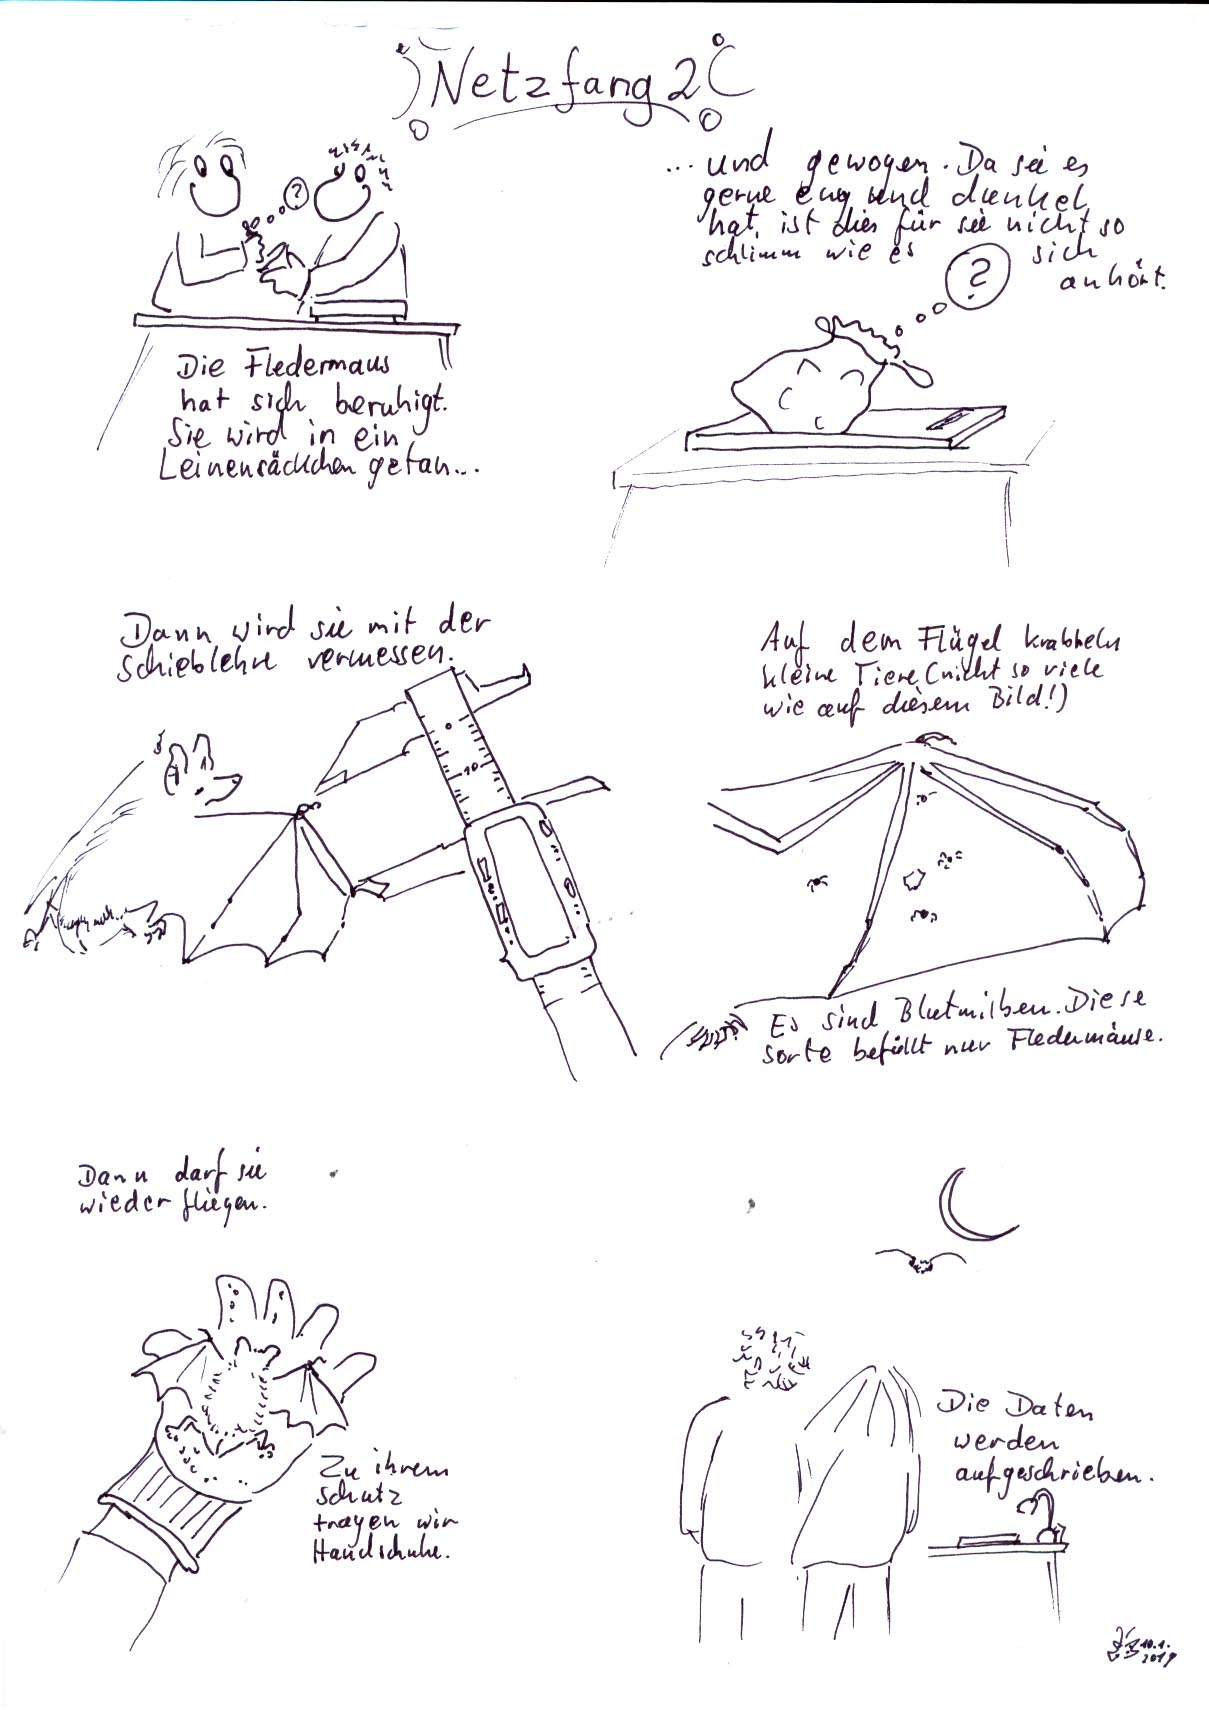 Netzfang 2
?
Die Fledermaus
hat sich beruhigt.
Sie wird in ein
Leinensäckchen getan...
... und gewogen. Da sie es
gerne eng und dunkel
hat, ist dies für sie nicht so
schlimm wie es sich
anhört.
?
Dann wird sie mit der
Schieblehre vermessen.
0
10
Auf dem Flügel krabbeln
kleine Tiere (nicht so viele
wie auf diesem Bild!)
Es sind Blutmilben. Diese
Sorte befällt nur Fledermäuse.
Dann darf sie
wieder fliegen.
Zu ihrem
Schutz
tragen wir
Handschuhe.
Die Daten
werden
aufgeschrieben.
10.1.
2019